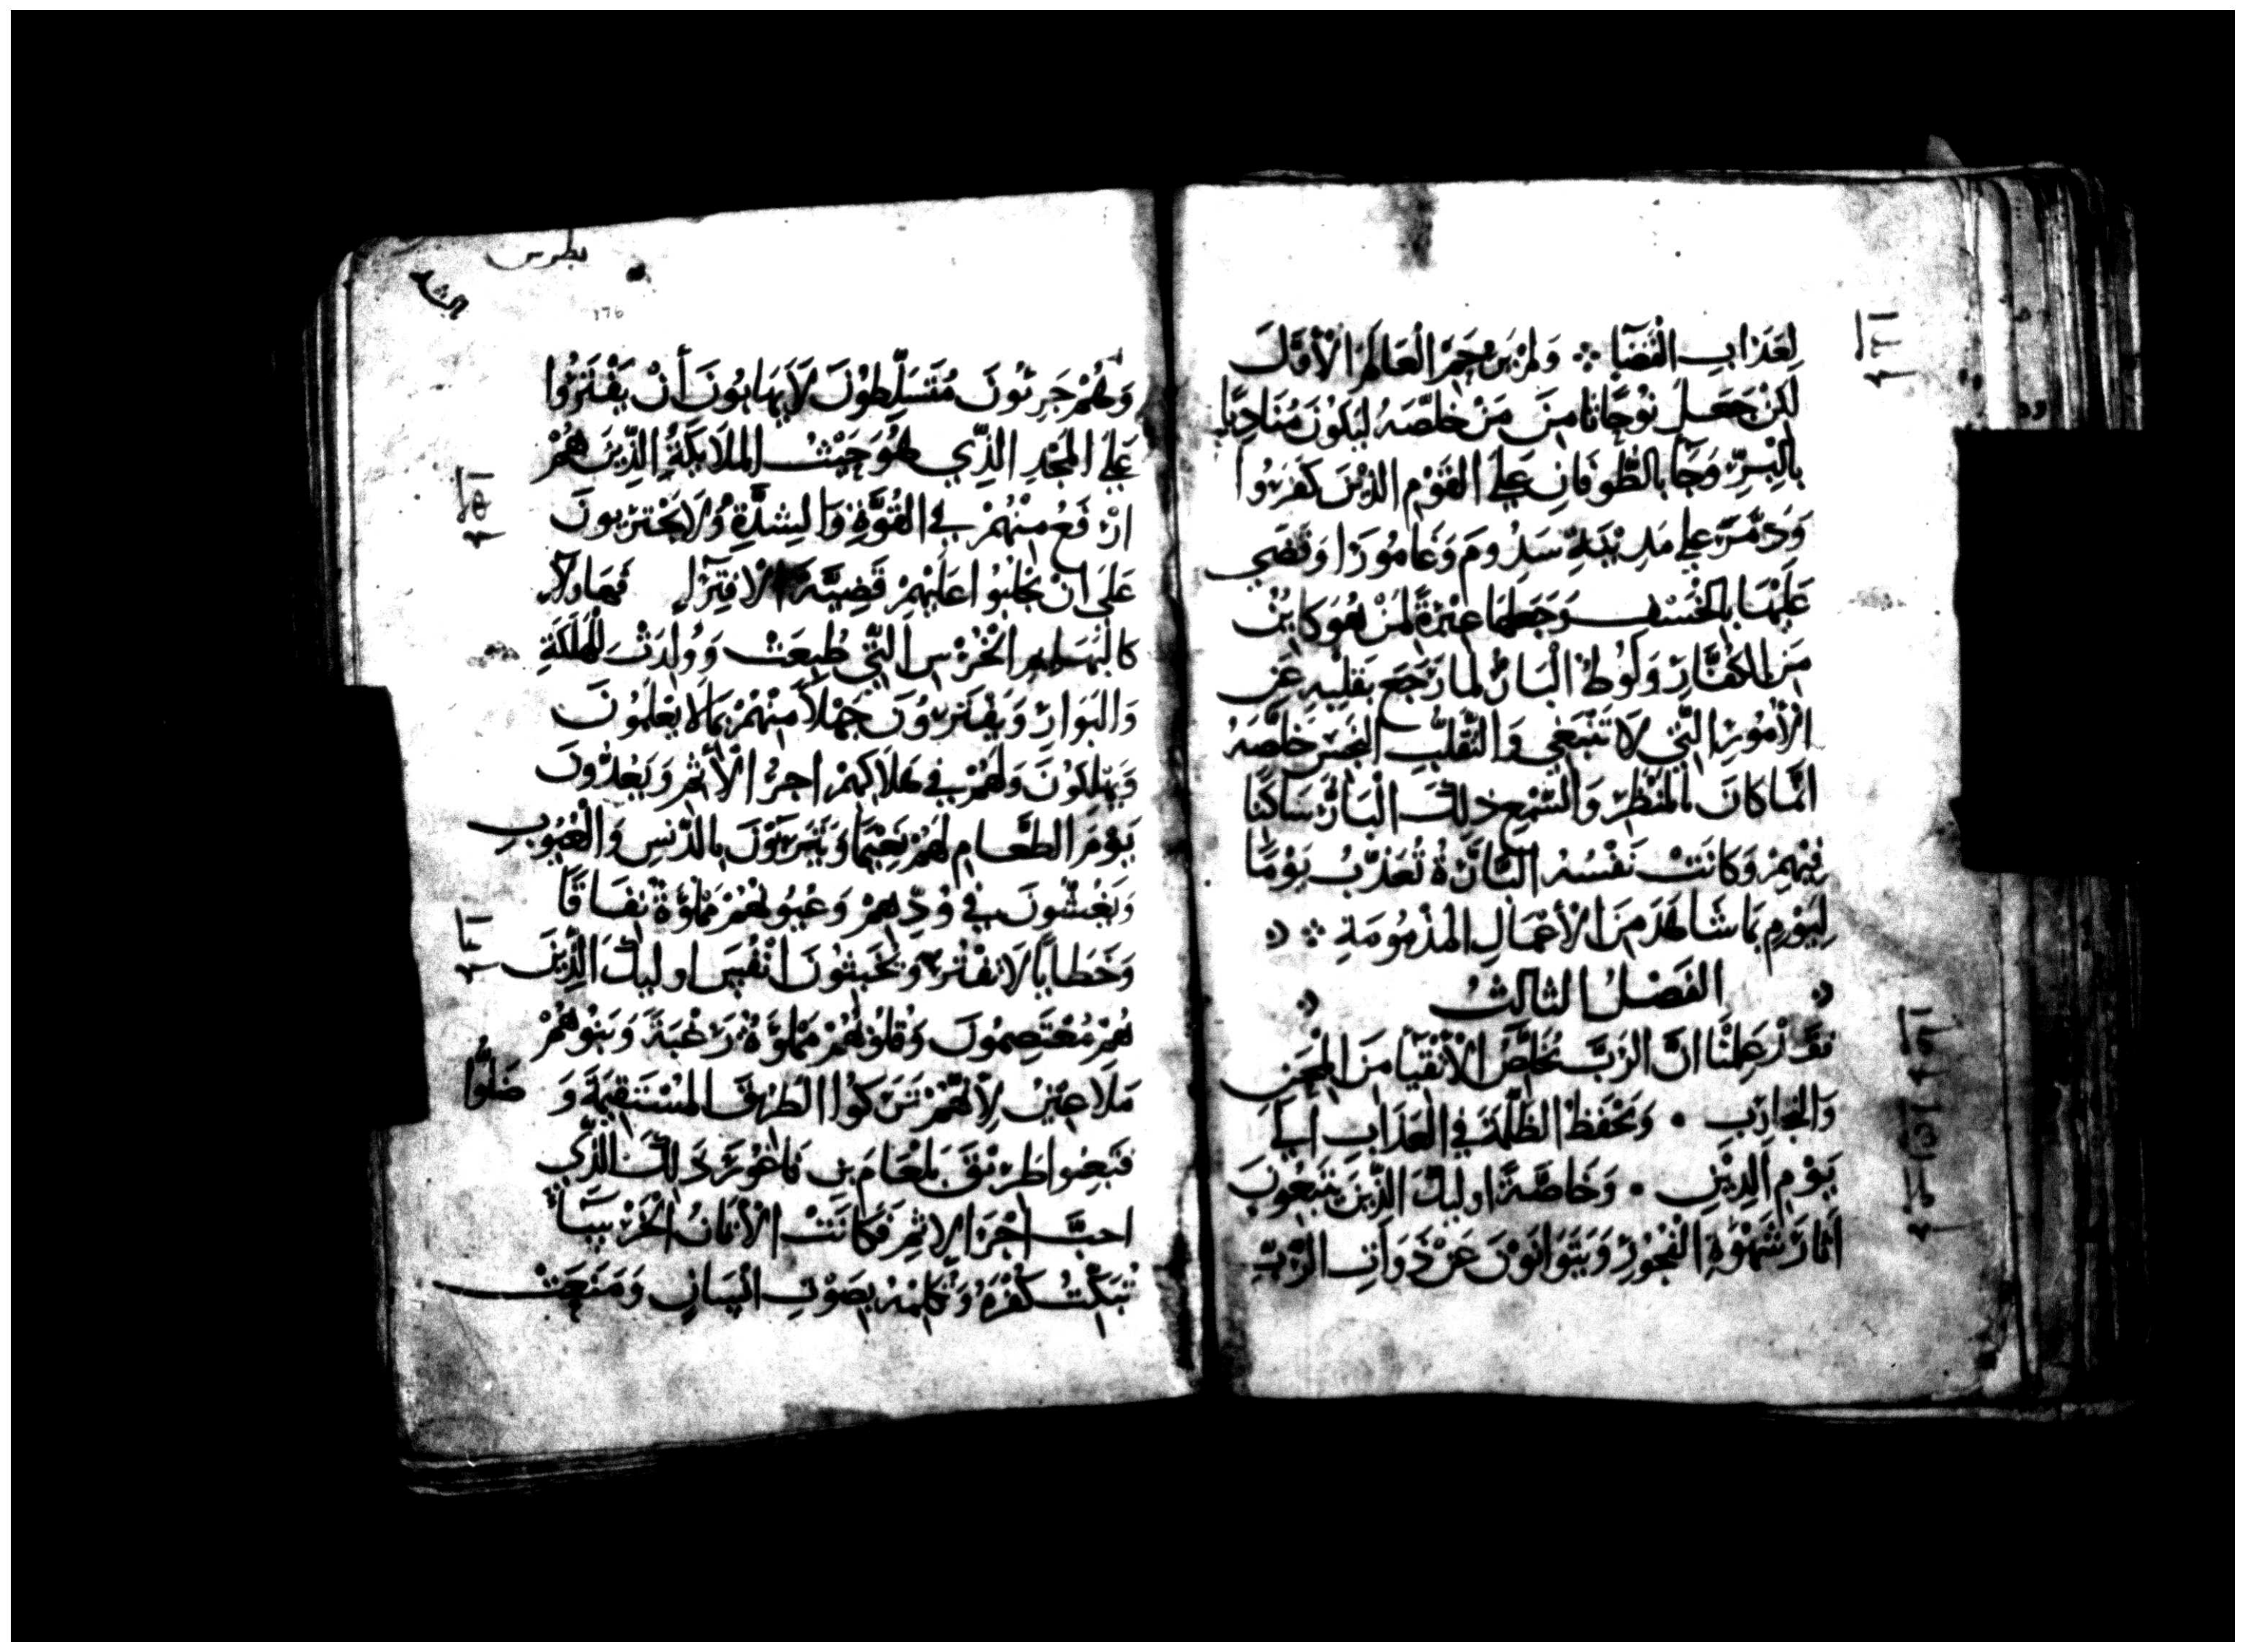 لِعَذَابِ الْقَضَا ܀ وَلَمْ يَرْحَمِ الْعَالَمَ الْأَوَّلَ
لَكِنْ جَعَلَ نُوحًا ثَامِنَ مَنْ خَلَّصَهُ لِيَكُونَ مُنَادِيًا
بِالْبِرِّ وَجَا بِالطُّوفَانِ عَلَى الْقَوْمِ الَّذِينَ كَفَرُوا
وَدَمَّرَ عَلَى مَدِينَةِ سَدُومَ وَغَامُورَا وَقَضَى
عَلَيْهَا بِالْخَسْفِ وَجَعَلَهَا عِبْرَةً لِمَنْ هُوَ كَايِنٌ
مِنَ الْكُفَّارِ وَلُوطُ الْبَارُّ لما رَجَعَ بِقَلْبِهِ عَنِ
الْأُمُورِ الَّتِي لَا تَنْبَغِي وَالتَّقَلُّبِ النَّجِسِ خَلَّصَهُ
انَّمَا كَانَ بِالْمَنْظَرِ وَالسَّمْعِ ذَلِكَ الْبَارُّ سَاكِنًا
فِيْهِمْ وَكَانَتْ نَفْسُهُ الْبَارَّةُ تُعَذَّبُ يَوْمًا
لِيَوْمٍ بِمَا شَاهَدَ مِنَ الْأَعْمَالِ الْمَذْمُومَةِ ܀
الفَصْلُ الثالثُ
فقَدْ عَلِمْنَا انَّ الرَّبَّ يُخَلِّصُ الْأَتْقِيَا مِنَ الْمِحَنِ
وَالتجارِبِ • وَيَحْفَظُ الظَّلَمَةَ فِي الْعَذَابِ الَى
يَوْمِ الدِّيْنِ • وَخَاصَّةً اوليكَ الَّذِينَ يَتْبَعُونَ
اثَارَ شَهْوَةِ الْفُجُورِ وَيَتَوَانَوْنَ عَنْ ذَوَاتِ الرَّبِّ
بطرس
176
وَهُمْ جَرِئُونَ مُتَسَلِّطُونَ لَا يَهَابُونَ أَنْ يَفْتَرُوا
عَلَى الْمَجْدِ الَّذِي هُوَ حَيْثُ الملَايكَةُ الَّذِينَ هُمْ
ارْفَعُ مِنْهُمْ فِي الْقُوَّةِ وَالشِدَّةِ وَلَا يَجْتَرِبونَ
عَلَى انْ يَجْلِبُوا عَلَيْهِمْ قَضِيَّةَ الافْتِرَاءِ فَهَاولَاءِ
كَالْبَهَايِمِ الْخُرْسِ الَّتِي طُبِعَتْ وَوُلِدَتْ لِلْهَلَكَةِ
وَالْبَوَارِ وَيَفْتَرُونَ جَهْلاً مِنْهُمْ بِمَا لَا يَعْلَمُونَ
وَيَهْلِكُونَ وَلَهُمْ فِي هَلَاكِهِمْ اجرُ الْأَثمِ وَيَعُدُّونَ
يَوْمَ الطَّعَامِ لَهُمْ نَعِيْمًا وَيَتَرَبَّوْنَ بِالدَّنَسِ وَالْعُيُوبِ
وَيَغُشُّونَ فِي وُدِّهِمْ وَعُيُونُهُمْ مَمْلُوَّةٌ نِفَاقًا
وَخَطَايَا لَا تَفْتُرُ وَيَخْبثُونَ انْفُسَ اوليكَ الَّذِينَ
هُمْ مُعْتَصِمُونَ وَقُلُوبُهُمْ مَمْلُوَّةٌ رَغْبَةً وَبَنُوهُمْ
مَلَاعِيْنُ لِأَنَّهُمْ تَرَكُوا الطَّرِيْقَ الْمُسْتَقِيْمَةَ وَ ضَلُّوا
فتَبِعُوا طَرِيْقَ بَلْعَامَ بنِ بَاعُورَ ذَلِكَ الَّذِي
احبَّ اجْرَ الْإِثْمِ فَكَانَتْ الْأَتَانُ الْخَرْسَا
تُبَكِّتُ كُفْرَهُ وَكَلَّمَتْهُ بِصَوْتِ انْسَانٍ وَمَنَعَتْ